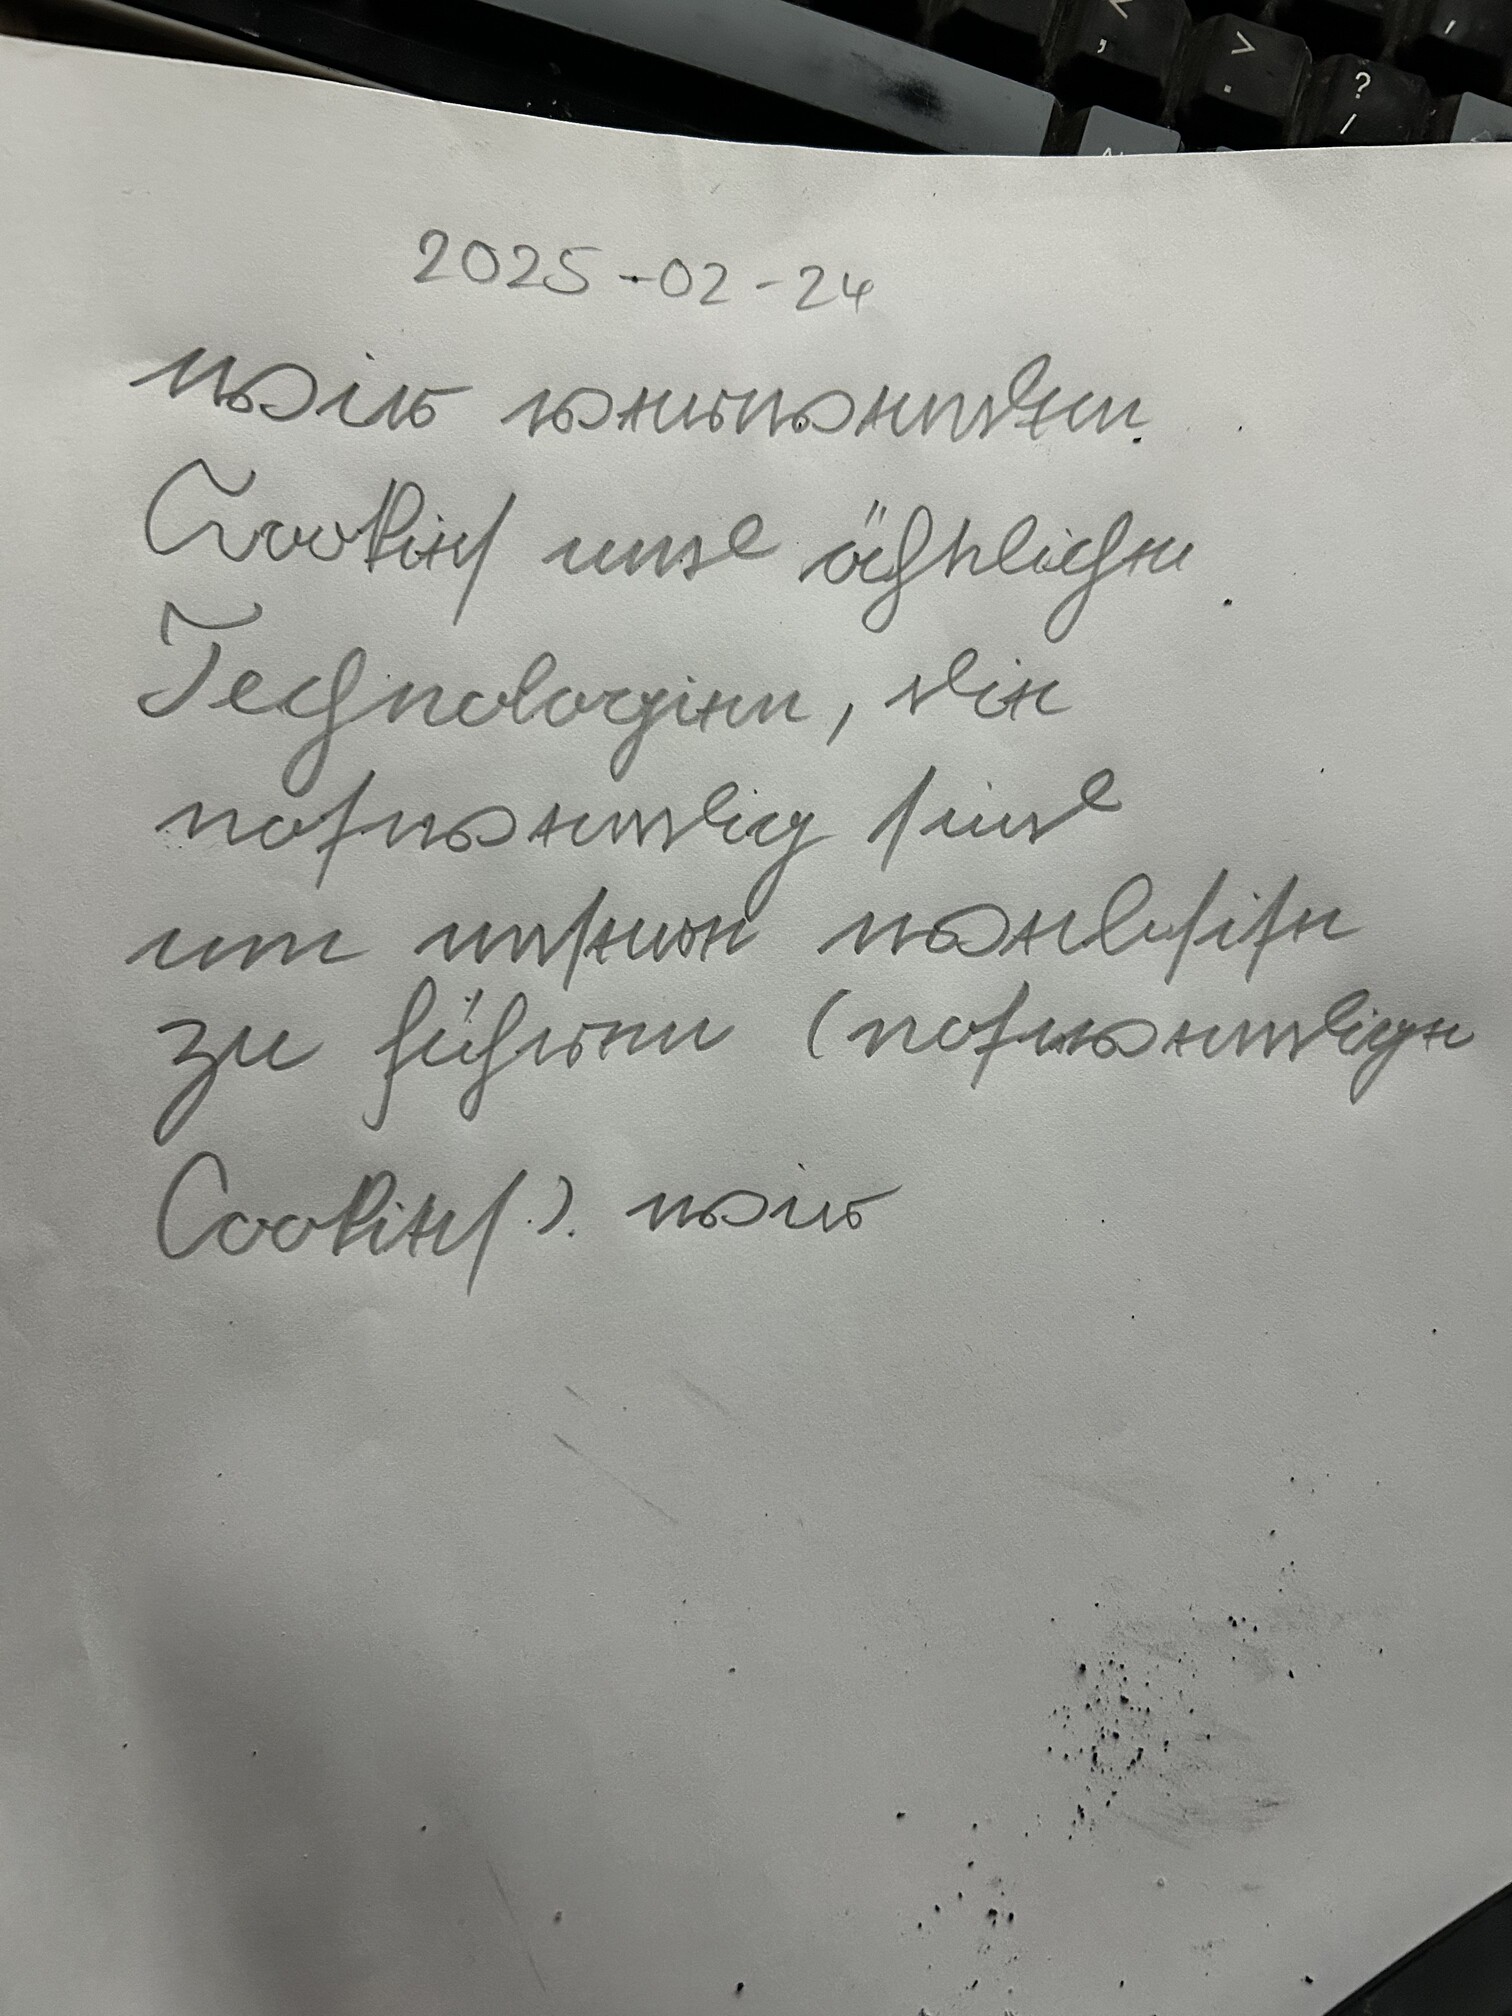 2025-02-24
wir verwenden.
Cookies und ächnliche
Technologien, die
notwendig sind
um unsere website
zu führen (notwendige
Cookies). wir